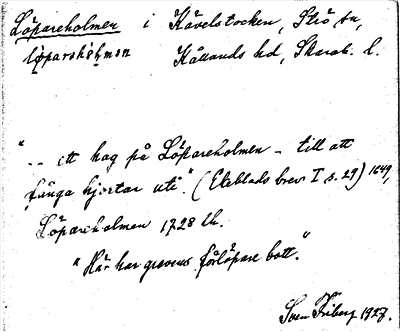 Löpareholmen i Kävelstocken, Strö sn,
löparshölmən Kållands hd, Skarab. l.
"-- ett hag på Löpareholmen - till att
fånga hjortar uti". (Ekeblads brev I s. 29) 1649,
Löpareholmen 1728 lh.
"Här har grevens förlöpare bott."
Sven Friberg 1927.